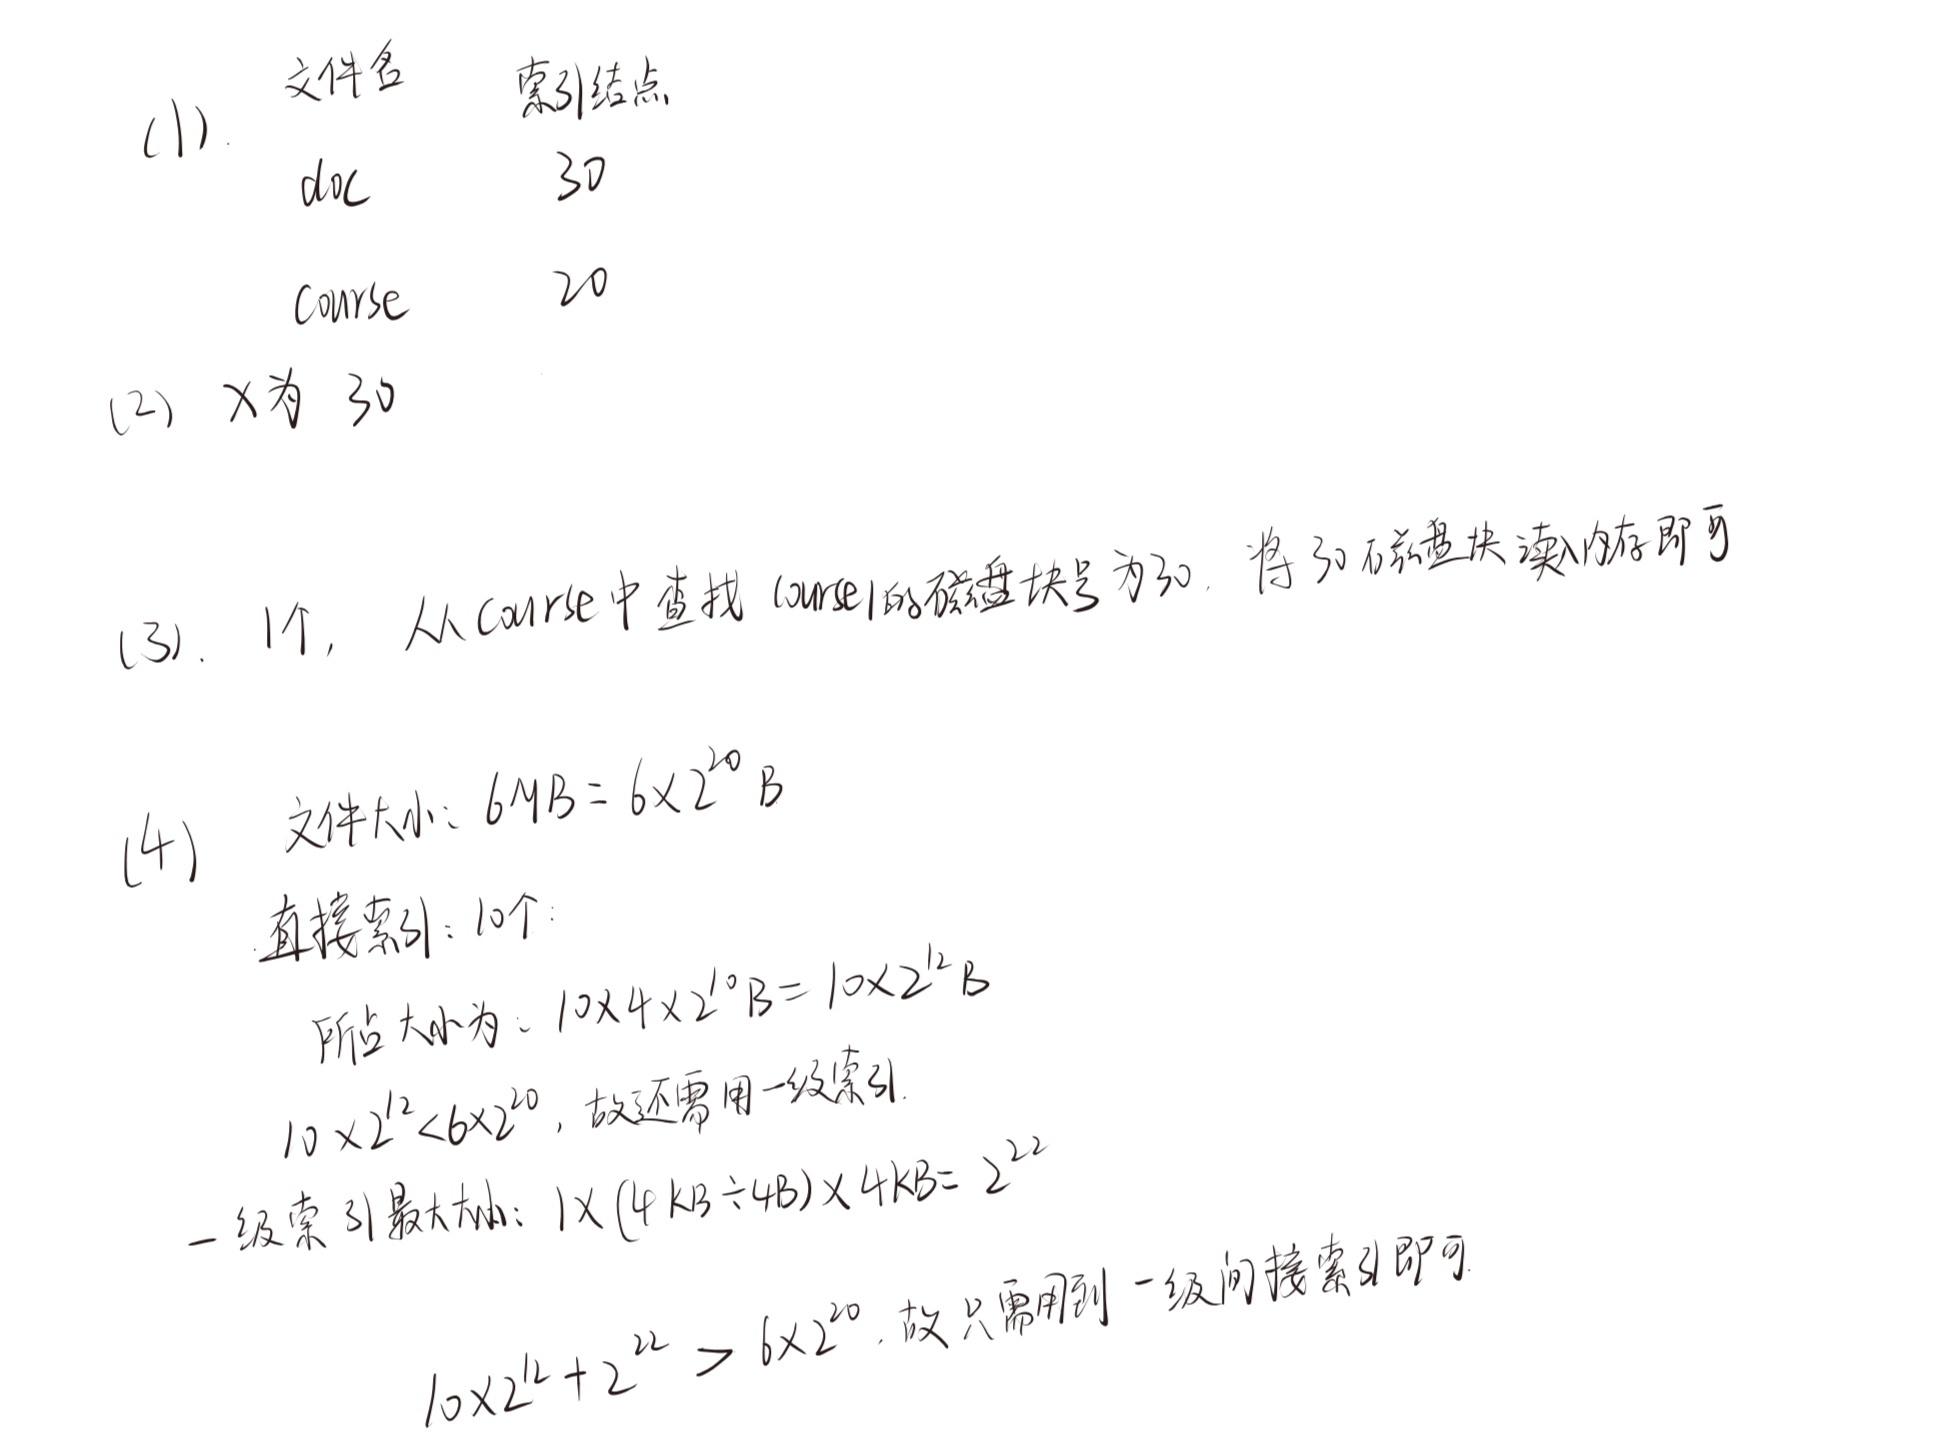 (1). 文件名 索引结点
doc 30
course 20
(2) X为 30
(3). 1个, 从course中查找 course1的磁盘块号为30. 将30石磁盘块读入内存即可
(4) 文件大小: 6MB = 6×2^20 B
直接索引: 10个:
所占大小为: 10×4×2^10 B = 10×2^12 B
10×2^12 < 6×2^20, 故还需用一级索引.
一级索引最大大小: 1×(4KB÷4B)×4KB = 2^22
10×2^12 + 2^22 > 6×2^20. 故只需用到一级间接索引即可.